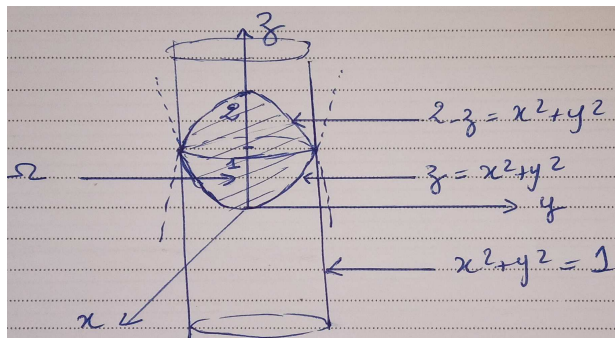 z
2
2-z = x²+y²
1
Ω
z = x²+y²
y
x²+y² = 1
x